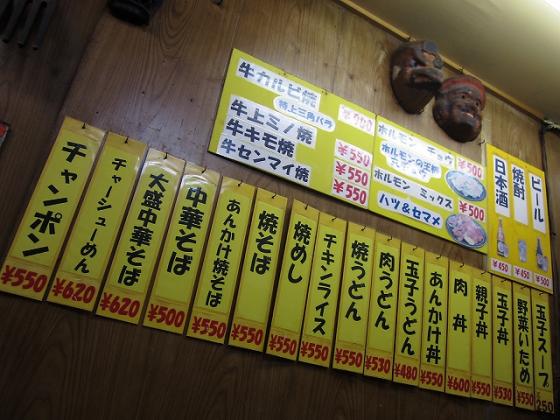 牛カルビ焼
特上三角バラ
¥700
牛上ミノ焼 ¥550
牛キモ焼 ¥550
牛センマイ焼 ¥550
ホルモン チョウ ¥500
ホルモンの王様
ホルモン ミックス ¥500
ハツ&セマメ
ビール ¥500
焼酎 ¥450
日本酒 ¥450
チャンポン ¥550
チャーシューめん ¥620
大盛中華そば ¥620
中華そば ¥500
あんかけ焼そば ¥550
焼そば ¥550
焼めし ¥550
チキンライス ¥550
焼うどん ¥550
肉うどん ¥530
玉子うどん ¥480
あんかけ丼 ¥550
肉丼 ¥600
親子丼 ¥550
玉子丼 ¥530
野菜いため ¥550
玉子スープ 250